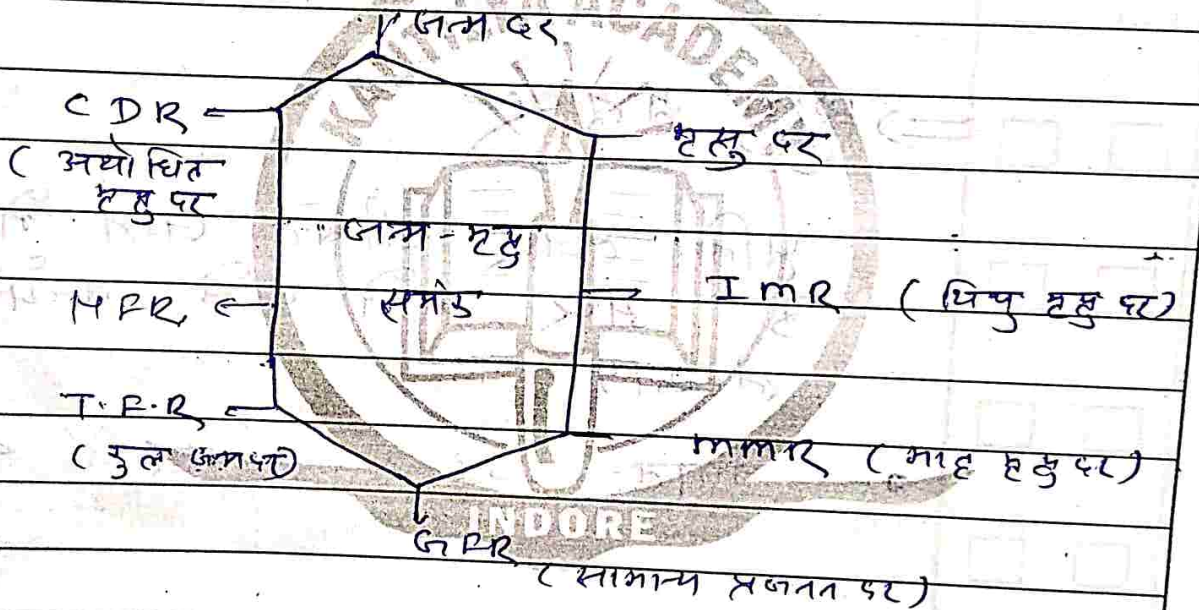 जन्म दर
CDR
(अशोधित
मृत्यु दर
मृत्यु दर
जन्म-मृत्यु
समंक
IMR (शिशु मृत्यु दर)
T.F.R
(कुल जन्मदर)
MMR (मातृ मृत्यु दर)
GFR
(सामान्य प्रजनन दर)
ACADEMY
INDORE